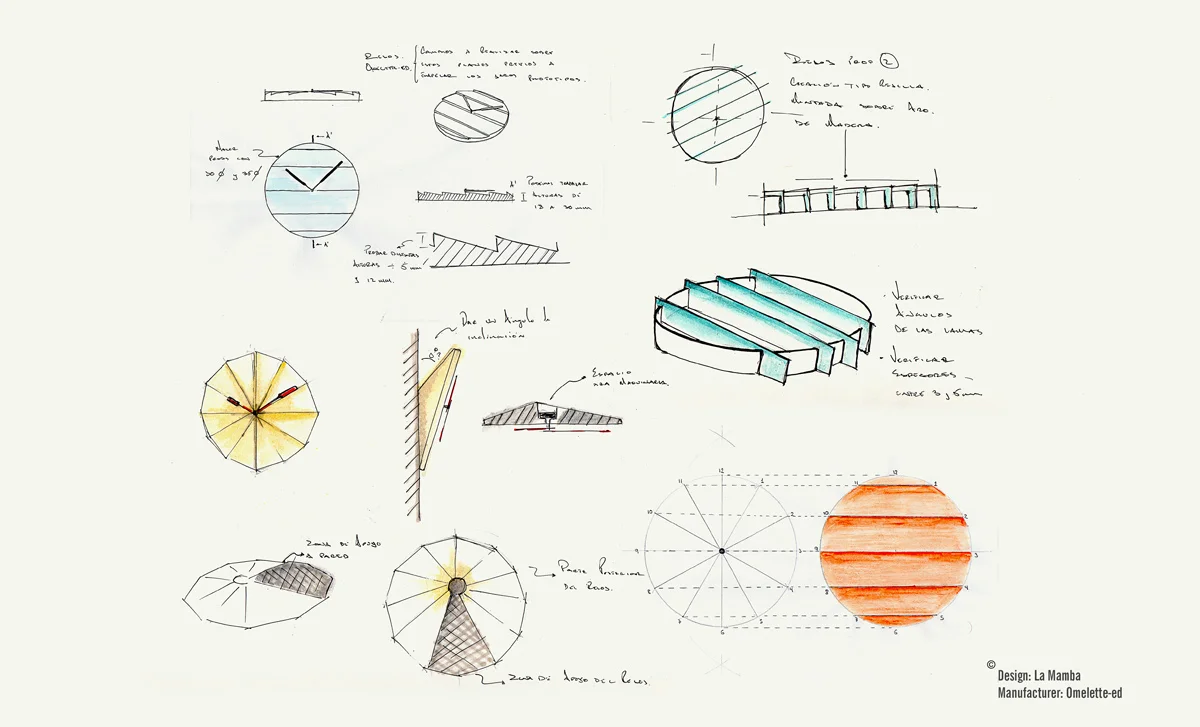 RELOJ
OMELETTE-ED.
CAMBIOS A REALIZAR SOBRE
ESTOS PLANOS PREVIOS A
EMPEZAR LOS PROTOTIPOS.
A'
HACER
PRUEBAS CON
30 Ø y 35 Ø
A'
A'
PODEMOS TRABAJAR
ALTURAS DE
18 A 30 mm
PROBAR DISTINTAS
ALTURAS - 5 mm
y 12 mm.
RELOJ 1000 2
CREACIÓN TIPO REJILLA.
MONTADA SOBRE ARO.
DE MADERA.
· VERIFICAR
ÁNGULOS
DE LAS LAMAS
· VERIFICAR
ESPESORES
ENTRE 3 y 5 mm
DAR UN ÁNGULO DE
INCLINACIÓN
ESPACIO
PARA MAQUINARIA.
ZONA DE APOYO
A PARED
PARTE POSTERIOR
DEL RELOJ.
ZONA DE APOYO DEL RELOJ.
12
11
1
10
2
9
3
8
4
7
5
6
12
11
1
2
9
3
8
4
7
5
6
©
Design: La Mamba
Manufacturer: Omelette-ed